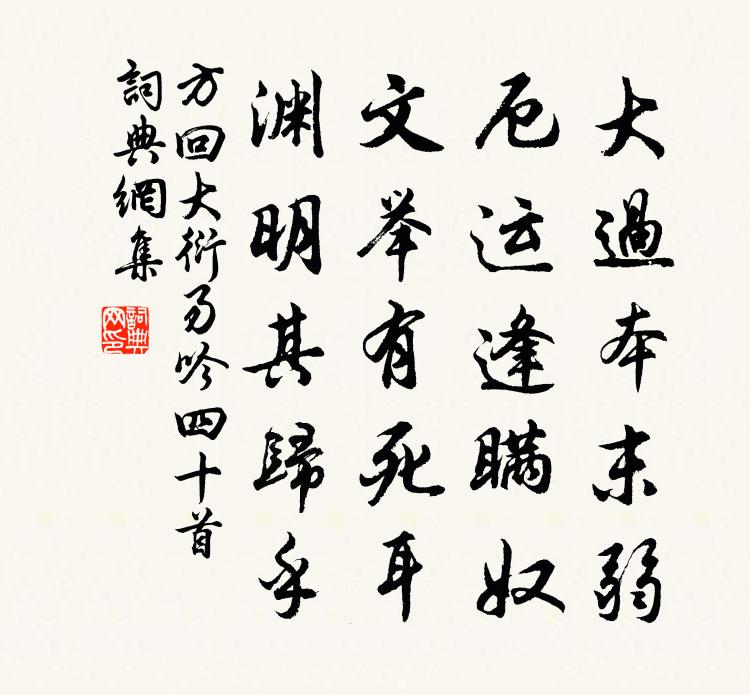 大過本末弱
厄运逢瞞奴
文举有死耳
渊明其歸乎
方回大衍易吟四十首
詞典網集
詞典
网印